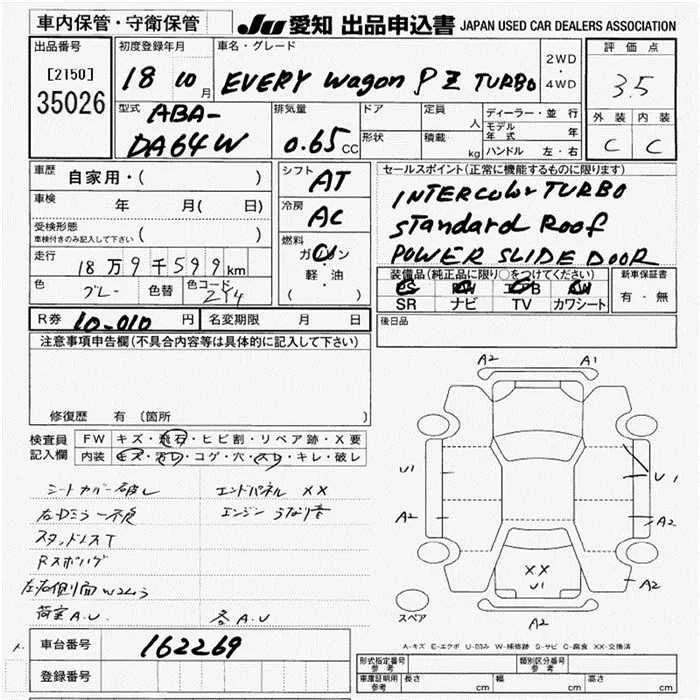 車内保管・守衛保管
JU 愛知 出品申込書 JAPAN USED CAR DEALERS ASSOCIATION
出品番号
[2150]
35026
初度登録年月
18 10月
車名・グレード
EVERY wagon PZ TURBO
2WD
・
4WD
評価点
3.5
外装 内装
C C
型式
ABA-
DA64W
排気量
0.65cc
ドア
形状
定員 人
積載 kg
ディーラー・並行
モデル年式 年
ハンドル 左・右
車歴 自家用・( )
車検 年 月( 日)
受検形態
車検付きのみ記入して下さい ( )
走行 18万9千599km
色 グレー 色替 色コード
シフト AT
冷房 AC
燃料
ガソリン
軽・油
( )
セールスポイント(正常に機能するものに限ります)
INTERCOOLER TURBO
Standard Roof
POWER SLIDE DOOR
装備品(純正品に限り○をつけてください)
PS PW エアB AW
SR ナビ TV カワシート
新車保証書
有・無
R券 10-010円 名変期限 月 日
後日品
注意事項申告欄(不具合内容等は具体的に記入して下さい)
修復歴 有 (箇所 )
検査員
記入欄
FW キズ・飛石・ヒビ割・リペア跡・X要
内装 キズ・汚レ・コゲ・穴・スレ・キレ・破レ
シートカバー破レ エンドパネル XX
右Dミラー不良 エンジン うなり音
Rスポ
荷室 A.U.
A2 A1
U1 U1
A2 A2
XX
U1
A2
A2
スペア
A-キズ E-エクボ U-凹み W-補修跡 S-サビ C-腐食 XX-交換済
車台番号 162269
登録番号
型式指定番号 参考
類別区分番号 参考
車庫証明用 参考 長さ cm 幅 cm 高さ cm